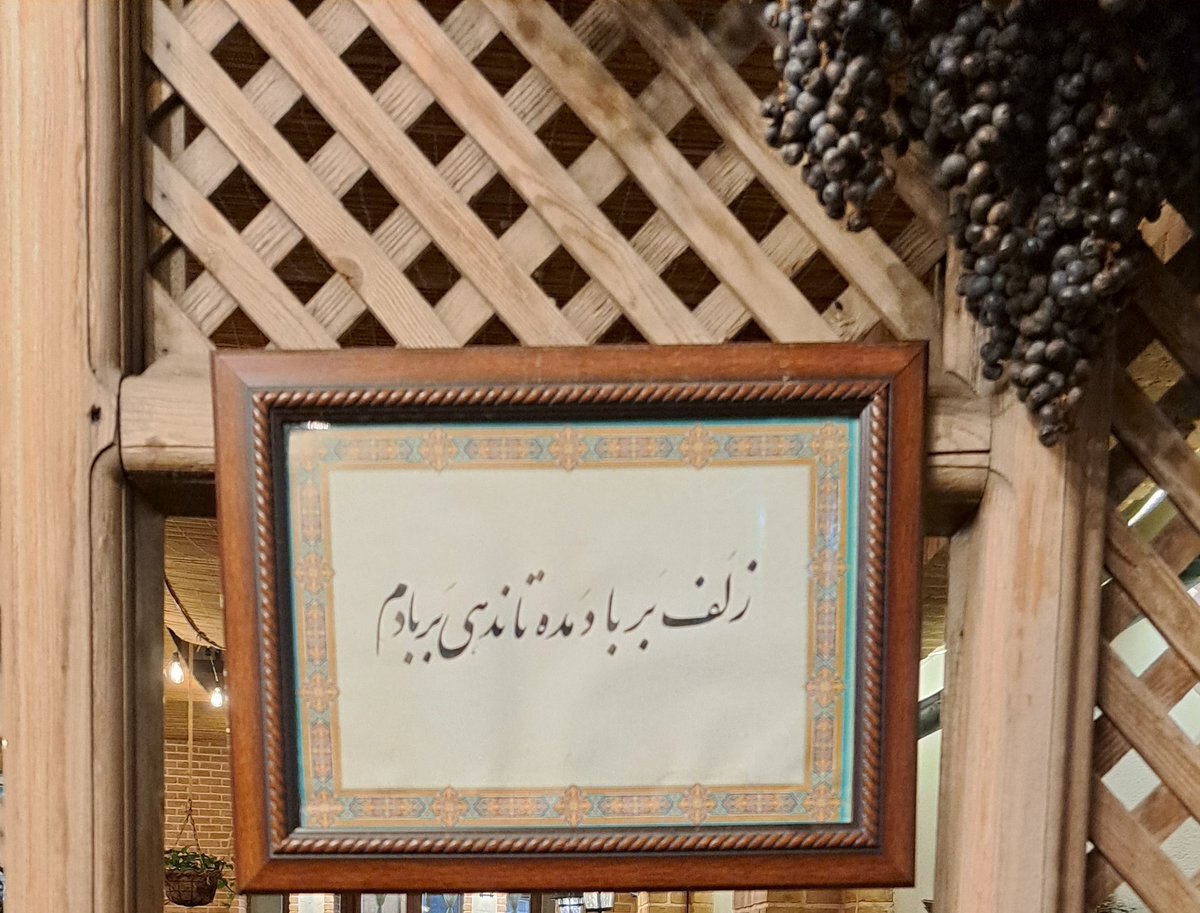 زلَف بَر با دمَده تا ندهی بَربادم